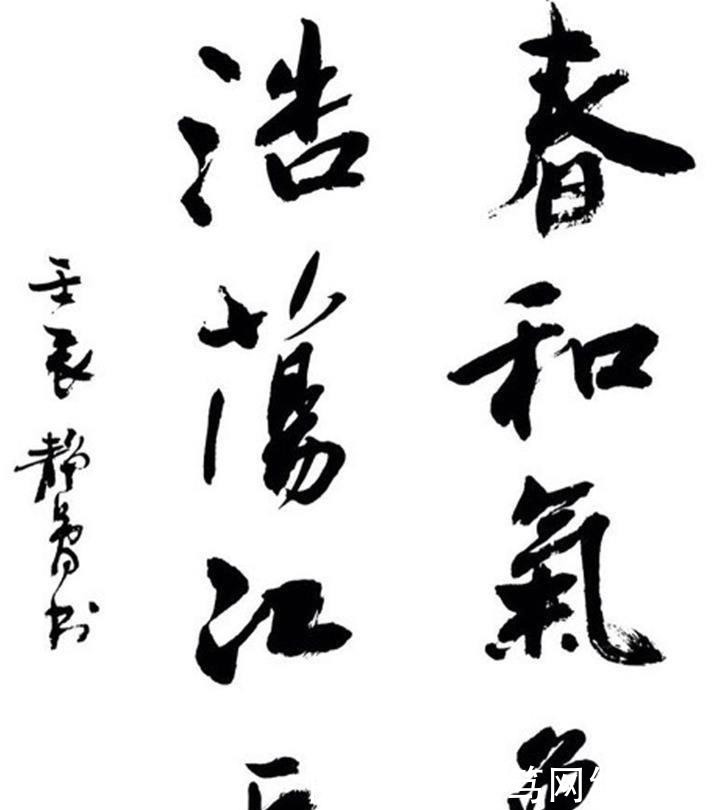 春和氣
浩蕩江
壬辰靜書
网